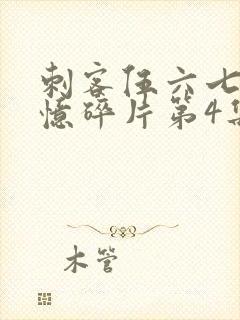 刺客伍六七
憶碎片第4集
木管